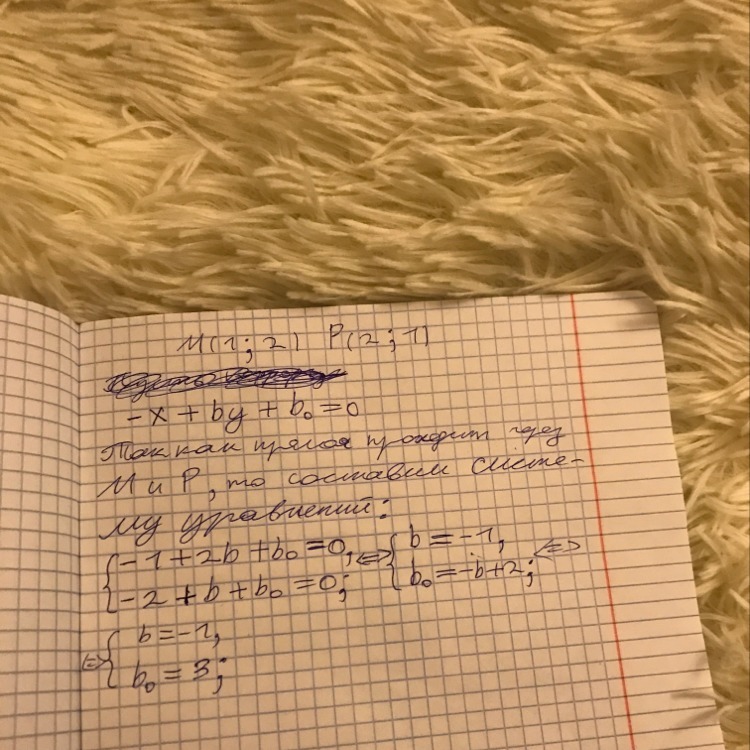 M(1;2) P(2;1)
-x + by + b₀ = 0
Так как прямая проходит через
M и P, то составим систе-
му уравнений:
{ -1 + 2b + b₀ = 0, <=> { b = -1,
{ -2 + b + b₀ = 0; { b₀ = -b + 2; <=>
<=> { b = -1,
{ b₀ = 3;